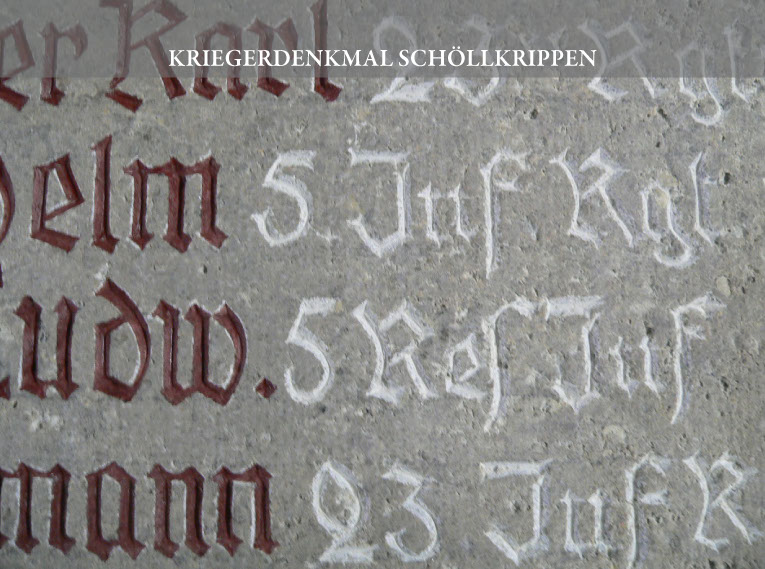 KRIEGERDENKMAL SCHÖLLKRIPPEN
er Karl 23 Rgt
helm 5. Inf Rgt
Ludw. 5 Res Inf
mann 23 Inf R